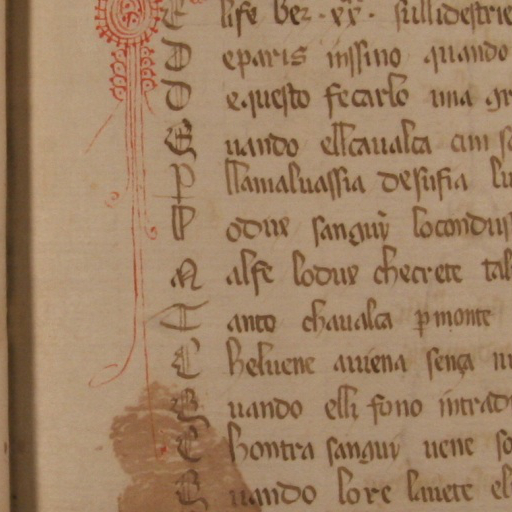 E life ber · xx · sullidestrie
D eparis inssino quando
D equesto fecarlo una gr
E uando ellcaualca cun
P llamaluassia desufia lu
P odux sanguỹ locondus
N alfe lodux checrete tal
T anto chaualca pmonte
C heluene auiena sença
uando elli fono intrad
C hontra sanguỹ uene so
uando lore lauete el